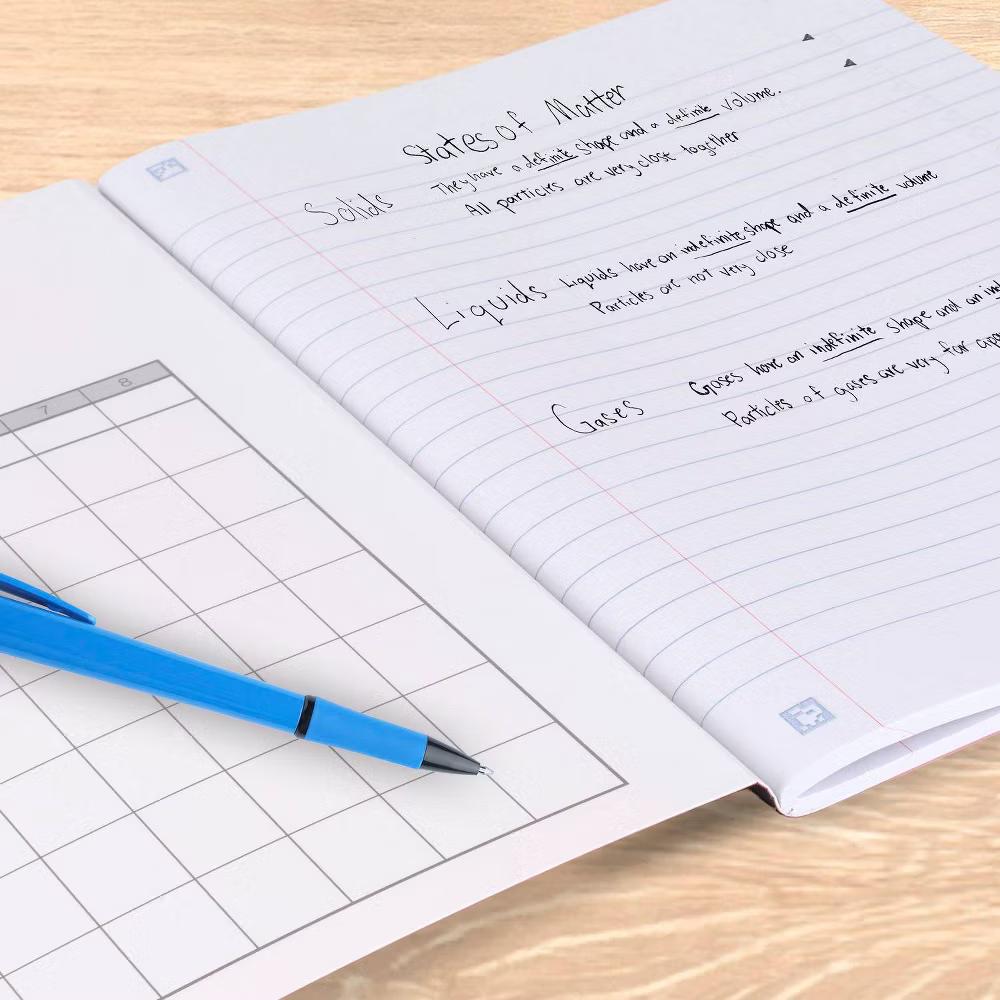 States of Matter
Solids They have a definite shape and a definite volume.
All particles are very close together
Liquids Liquids have an indefinite shape and a definite volume
Particles are not very close
Gases Gases have an indefinite shape and an
Particles of gases are very far
7 8